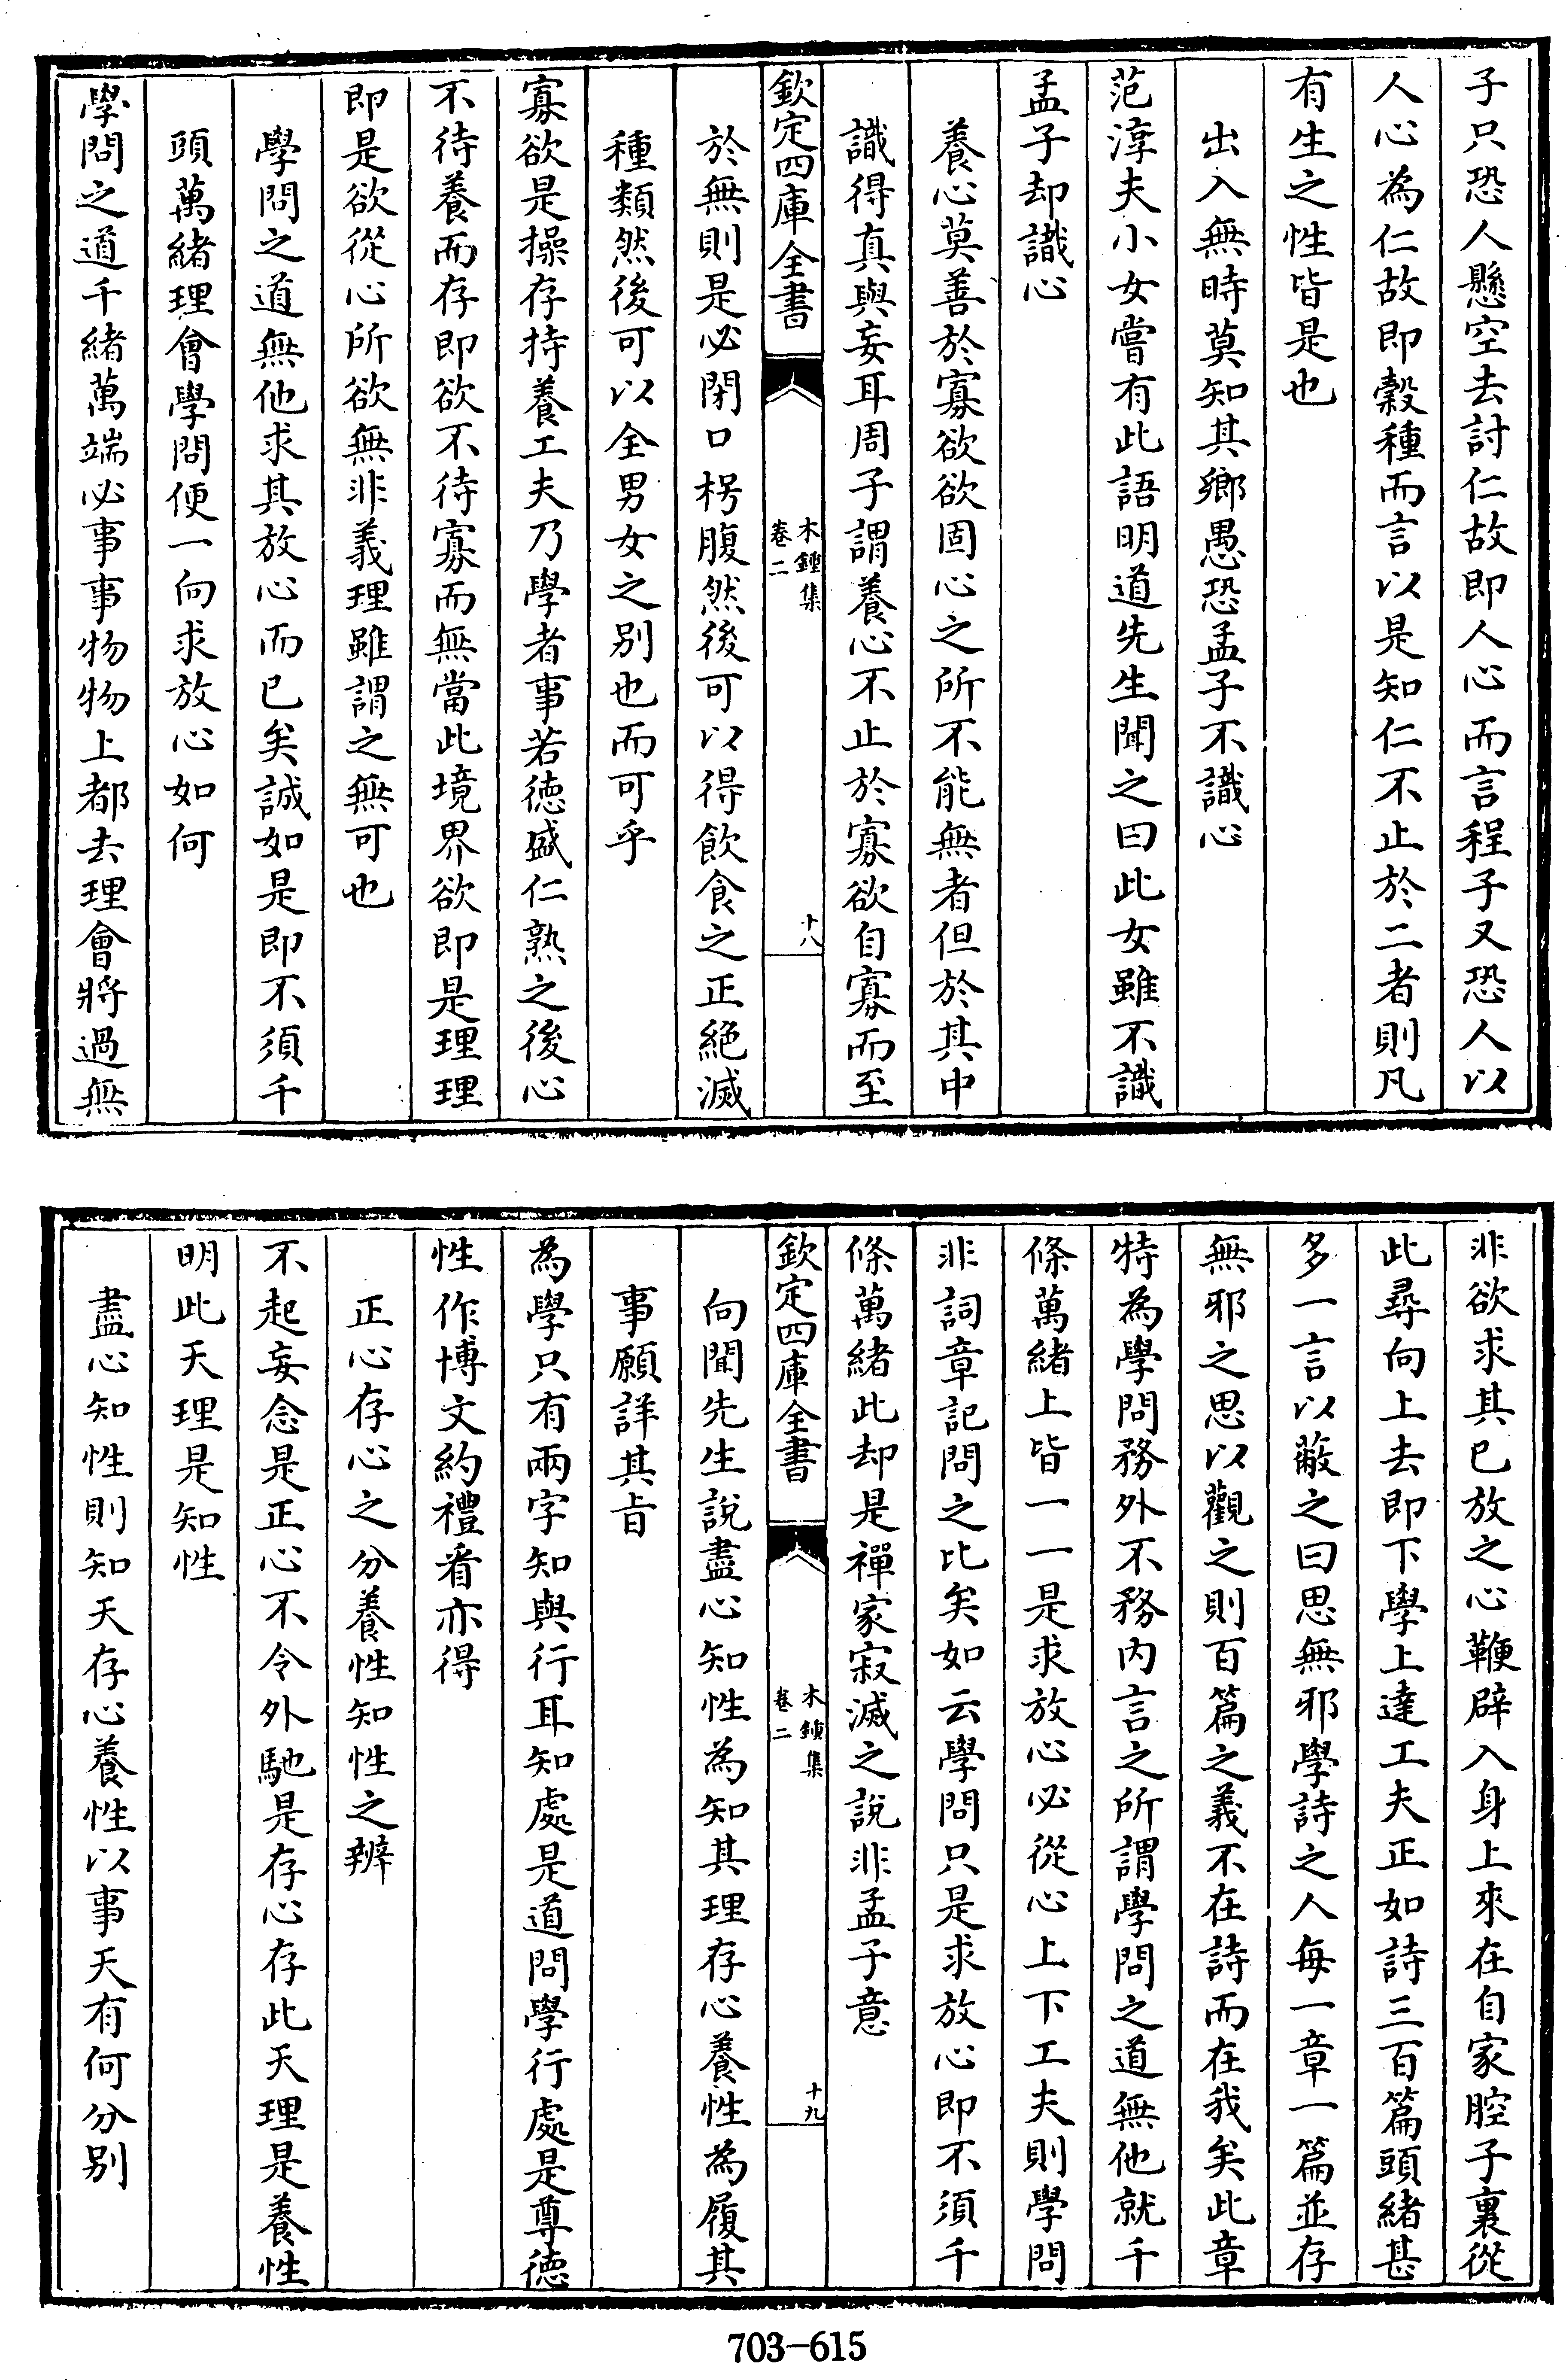 子只恐人懸空去討仁故即人心而言程子又恐人以
人心為仁故即穀種而言以是知仁不止於二者則凡
有生之性皆是也
出入無時莫知其鄉愚恐孟子不識心
范淳夫小女嘗有此語明道先生聞之曰此女雖不識
孟子却識心
養心莫善於寡欲欲固心之所不能無者但於其中
識得真與妄耳周子謂養心不止於寡欲自寡而至
欽定四庫全書
木鍾集
卷二
十八
於無則是必閉口枵腹然後可以得飲食之正絕滅
種類然後可以全男女之别也而可乎
寡欲是操存持養工夫乃學者事若徳盛仁熟之後心
不待養而存即欲不待寡而無當此境界欲即是理理
即是欲從心所欲無非義理雖謂之無可也
學問之道無他求其放心而已矣誠如是即不須千
頭萬緒理會學問便一向求放心如何
學問之道千緒萬端必事事物物上都去理會將過無
非欲求其已放之心鞭辟入身上來在自家腔子裏從
此尋向上去即下學上達工夫正如詩三百篇頭緒甚
多一言以蔽之曰思無邪學詩之人每一章一篇並存
無邪之思以觀之則百篇之義不在詩而在我矣此章
特為學問務外不務内言之所謂學問之道無他就千
條萬緒上皆一一是求放心必從心上下工夫則學問
非詞章記問之比矣如云學問只是求放心即不須千
條萬緒此却是禪家寂滅之說非孟子意
欽定四庫全書
木鍾集
卷二
十九
向聞先生說盡心知性為知其理存心養性為履其
事願詳其㫖
為學只有兩字知與行耳知處是道問學行處是尊徳
性作博文約禮看亦得
正心存心之分養性知性之辨
不起妄念是正心不令外馳是存心存此天理是養性
明此天理是知性
盡心知性則知天存心養性以事天有何分别
703-615